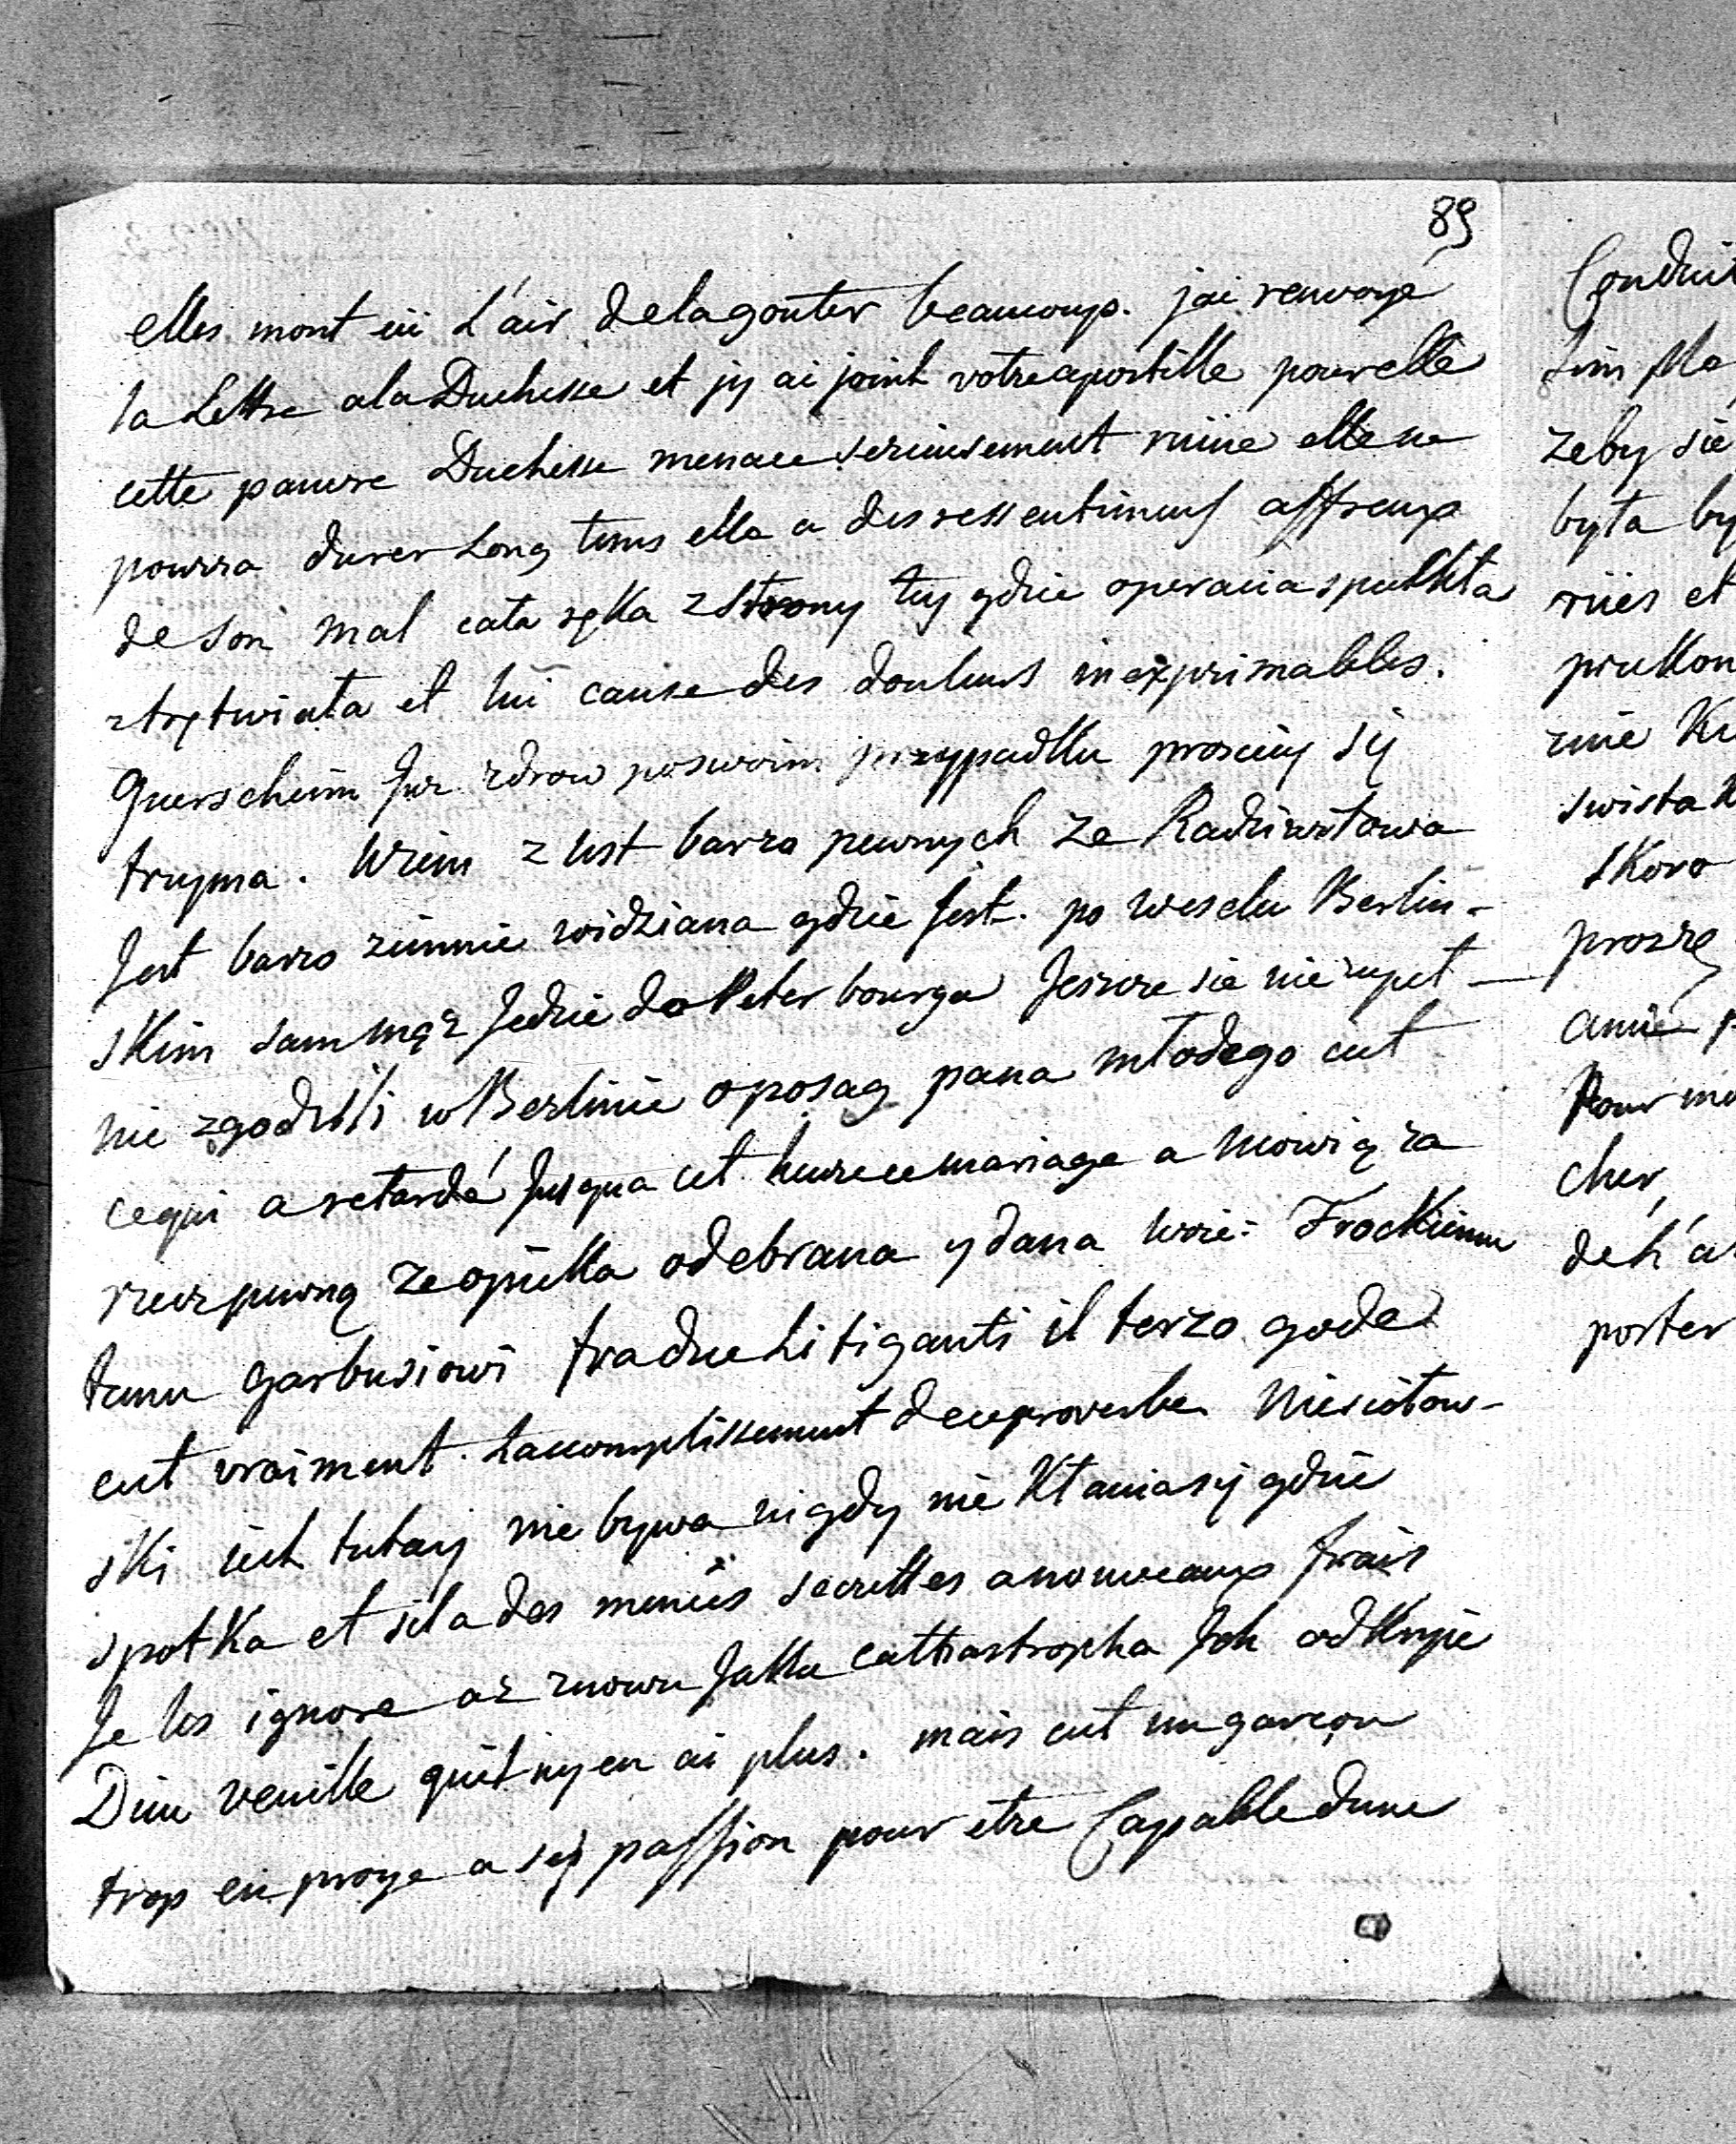 89
elles mont eü L'air de la gouter beaucoup. jai renvoyé
la Lettre a la Duchesse et jy ai joint votre apostille pour elle
cette pauvre Duchesse menace serieusement ruine elle ne
pourra durer Long tems elle a des ressentimens affreux
de son mal cała ręka z strony tey gdzie operacia spuchła
ztrętwiała et lui cause des douleurs inexprimables.
Guerscheim Juz zdrow po swoim przypadku prosciey sie
trzyma. Wiem z ust barzo pewnych ze Radziwiłowa
Jest barzo zimnie widziana gdzie Jest. po weselu Berlin-
skim sam mąż Jedzie do Peterbourga Jeszcze sie nie zupeł-
nie zgodzili w Berlinie o posag pana młodego cest
ce qui a retardé Jusqua cet heure ce mariage a mowią za
rzecz pewną ze opieka odebrana y dana woie: Trockiemu
temu garbusiowi tra due Litiganti il terzo gode
cest vraiment Laccomplissement de ce proverbe Niesiołow-
ski ich tutay nie bywa nigdy nie kłania sie gdzie
spotka et sil a des menées secrettes a nouveaux frais
Je les ignore az znowu Jaka cathastropha Ich odkryie
Dieu veuille quil ny en ai plus. mais cest un garçon
trop en proye a ses passion pour etre Capable dune
Conduit
zeby sie
była by
ries et
skoro
proszę
amie
Pour
cher
porter